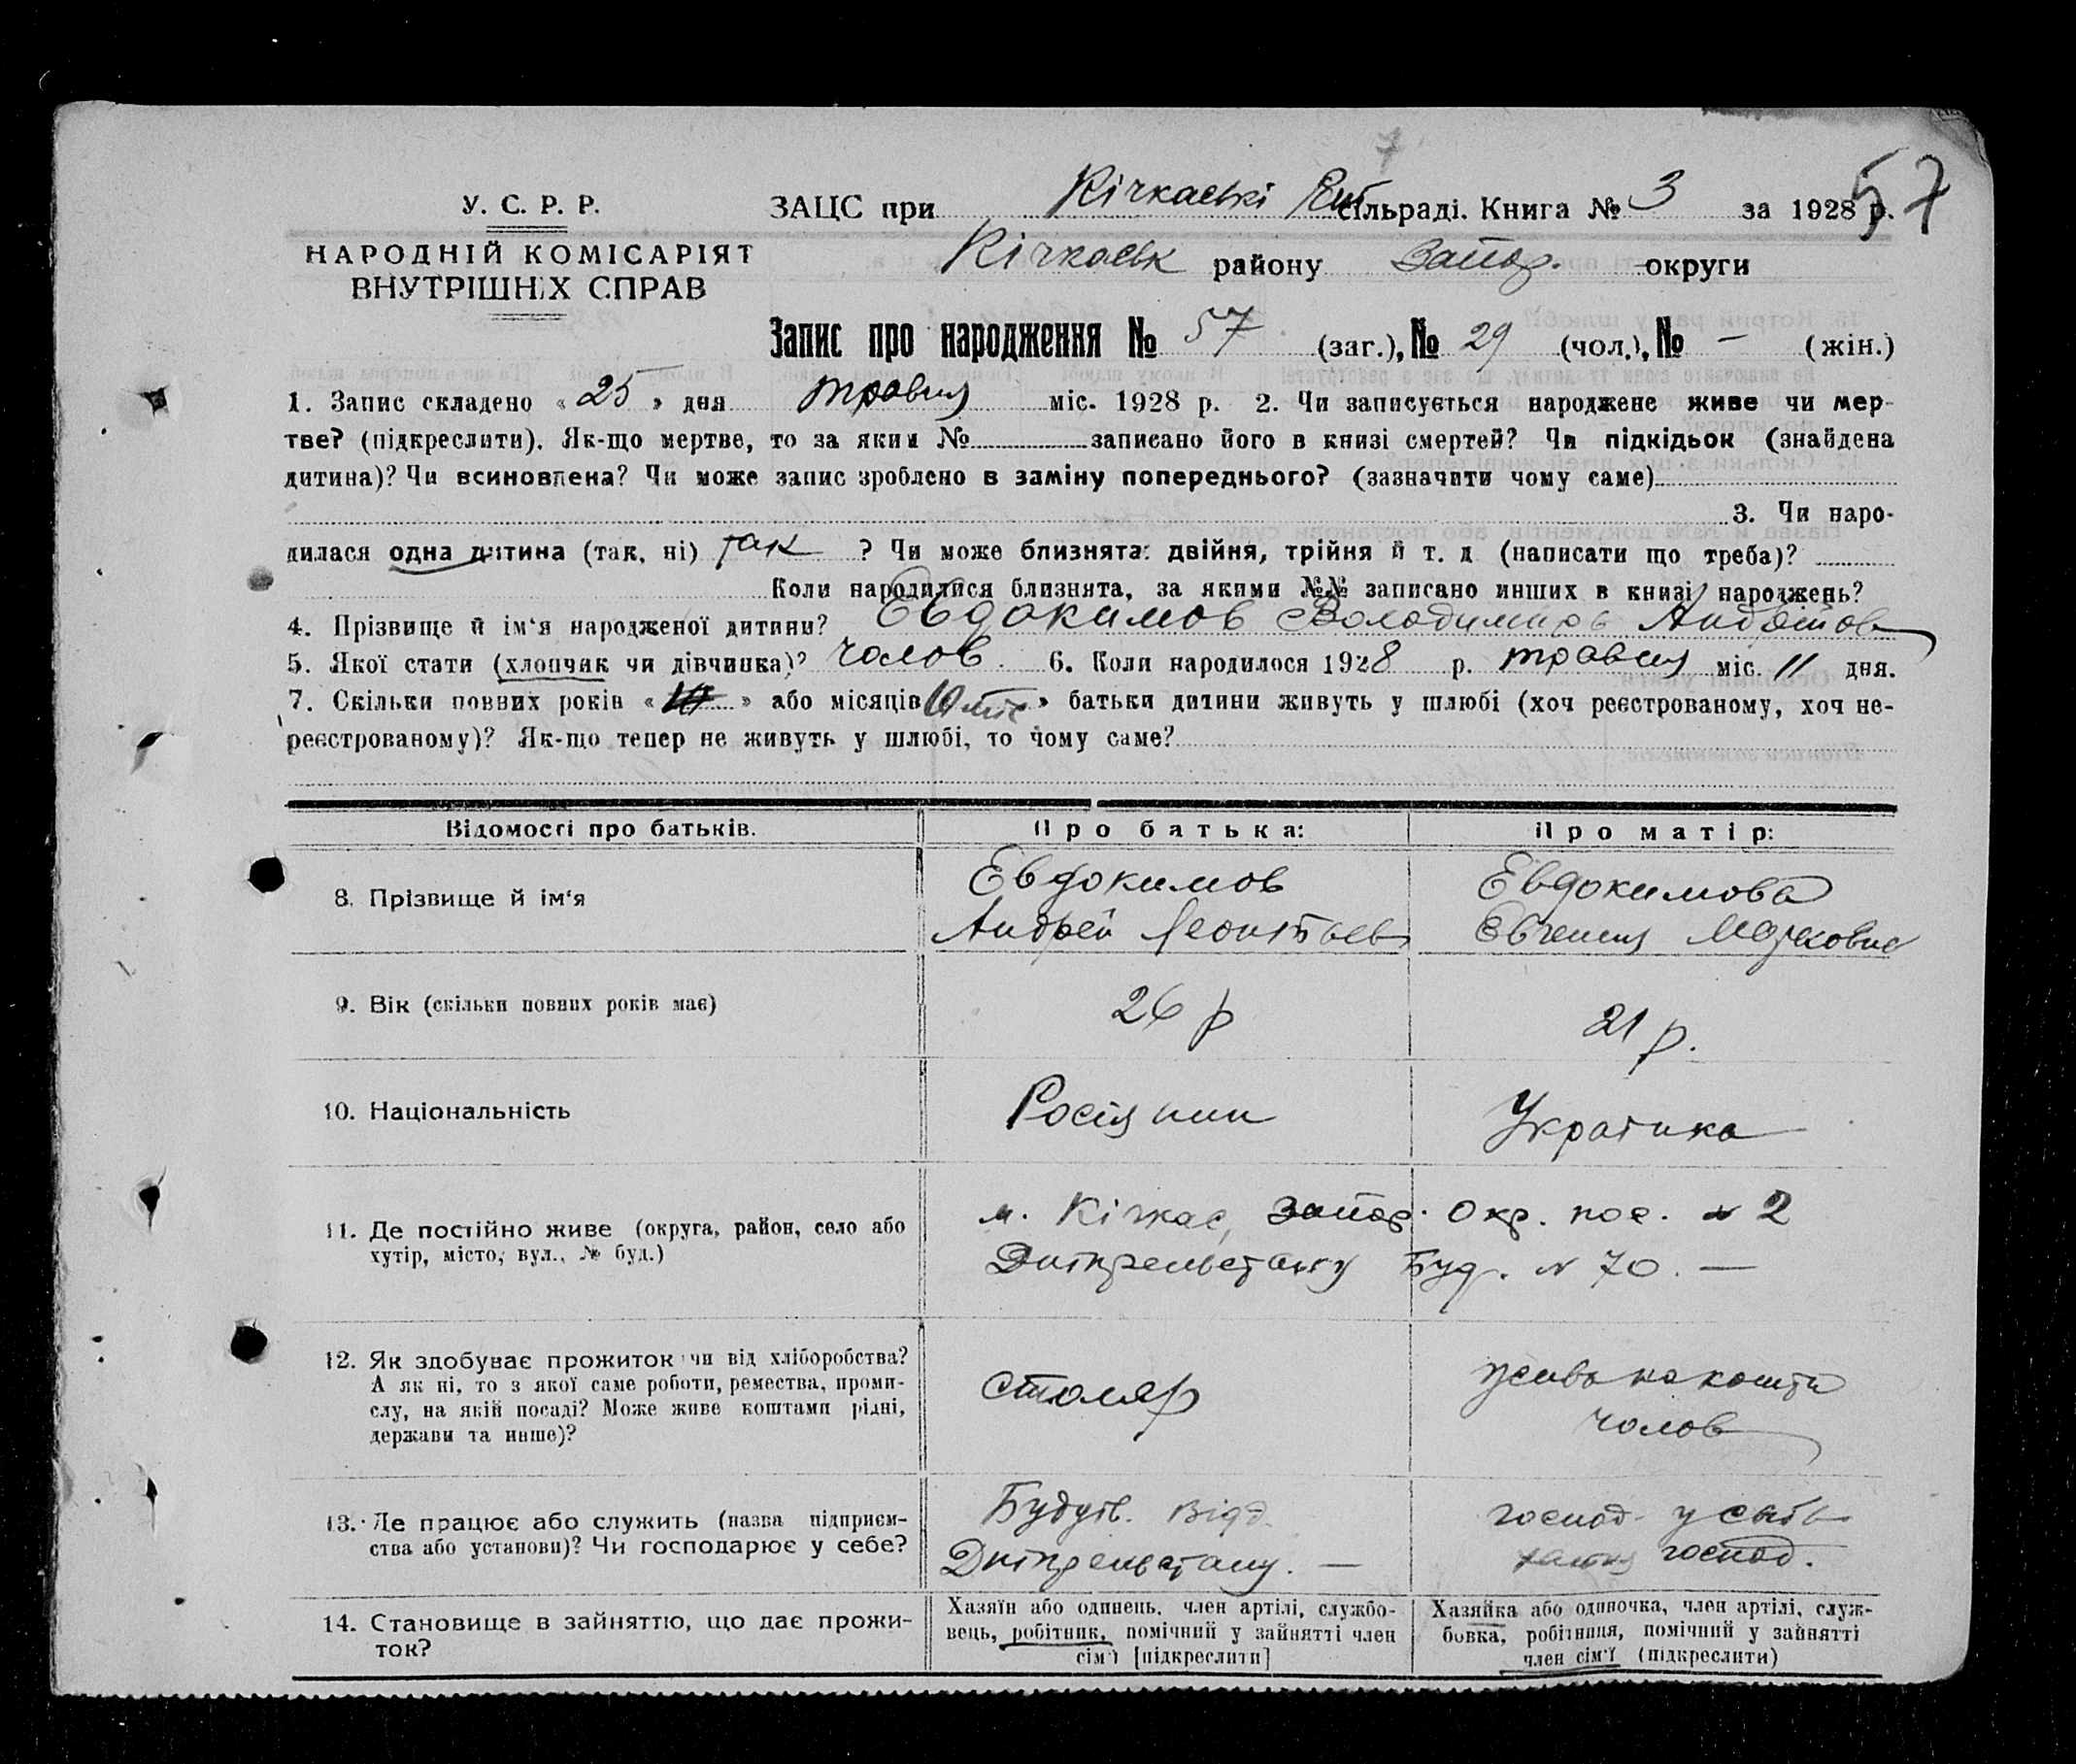 57
У. С. Р. Р.
НАРОДНІЙ КОМІСАРІЯТ
ВНУТРІШНІХ СПРАВ
ЗАЦС при Кічкаські сільраді. Книга № 3 за 1928 р.
Кічкаськ району Запор. округи
Запис про народження № 57 (заг.), № 29 (чол.), № — (жін.)
1. Запис складено « 25 » дня травня міс. 1928 р. 2. Чи записується народжене живе чи мер-
тве? (підкреслити). Як-що мертве, то за яким № записано його в книзі смертей? Чи підкідьок (знайдена
дитина)? Чи всиновлена? Чи може запис зроблено в заміну попереднього? (зазначити чому саме)
3. Чи наро-
дилася одна дитина (так, ні) так ? Чи може близнята: двійня, трійня й т. д (написати що треба)?
Коли народилися близнята, за якими №№ записано инших в книзі народжень?
4. Прізвище й ім‘я народженої дитини? Евдокимов Володимир
5. Якої стати (хлопчик чи дівчинка)? чолов. 6. Коли народилося 1928 р. травня міс. 11 дня.
7. Скільки повних років « » або місяців 10 міс » батьки дитини живуть у шлюбі (хоч реєстрованому, хоч не-
реєстрованому)? Як-що тепер не живуть у шлюбі, то чому саме?
Відомості про батьків. Про батька: Про матір:
8. Прізвище й ім‘я
Евдокимов
Андрей Леонтьев
Евдокимова
Евгения Марковна
9. Вік (скільки повних років має) 26 р 21 р.
10. Національність Росіянин Українка
11. Де постійно живе (округа, район, село або
хутір, місто, вул., № буд.)
м. Кічкас, Запор. Окр. пос. № 2
Дніпрельстану Буд. № 70. —
12. Як здобуває прожиток чи від хліборобства?
А як ні, то з якої саме роботи, ремества, проми-
слу, на якій посаді? Може живе коштами рідні,
держави та инше)?
столяр
на кошти
чолов
13. Де працює або служить (назва підприєм-
ства або установи)? Чи господарює у себе?
Будів. Від.
Дніпрельстану. —
господ. у
господ.
14. Становище в зайняттю, що дає прожи-
ток?
Хазяїн або одинець, член артілі, службо-
вець, робітник, помічний у зайнятті член
сім‘ї [підкреслити]
Хазяйка або одиночка, член артілі, служ-
бовка, робітниця, помічний у зайнятті
член сім‘ї (підкреслити)